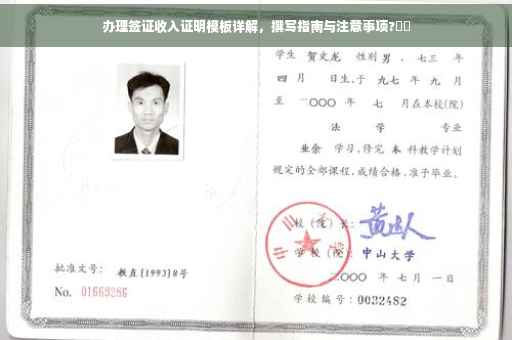 办理签证收入证明模板详解，撰写指南与注意事项?▯▯
学生 贺文龙 性别 男 ，七三 年
四 月 日生，于 九七 年 九 月
至 二〇〇〇 年 七 月在本校(院)
法 学 专业
业余 学习，修完 本 科教学计划
规定的全部课程，成绩合格，准予毕业。
校(院)长：
学校(院)：中山大学
二〇〇〇 年 七 月 一 日
学校编号：0032482
批准文号：教直[1993]8号
No. 01669286